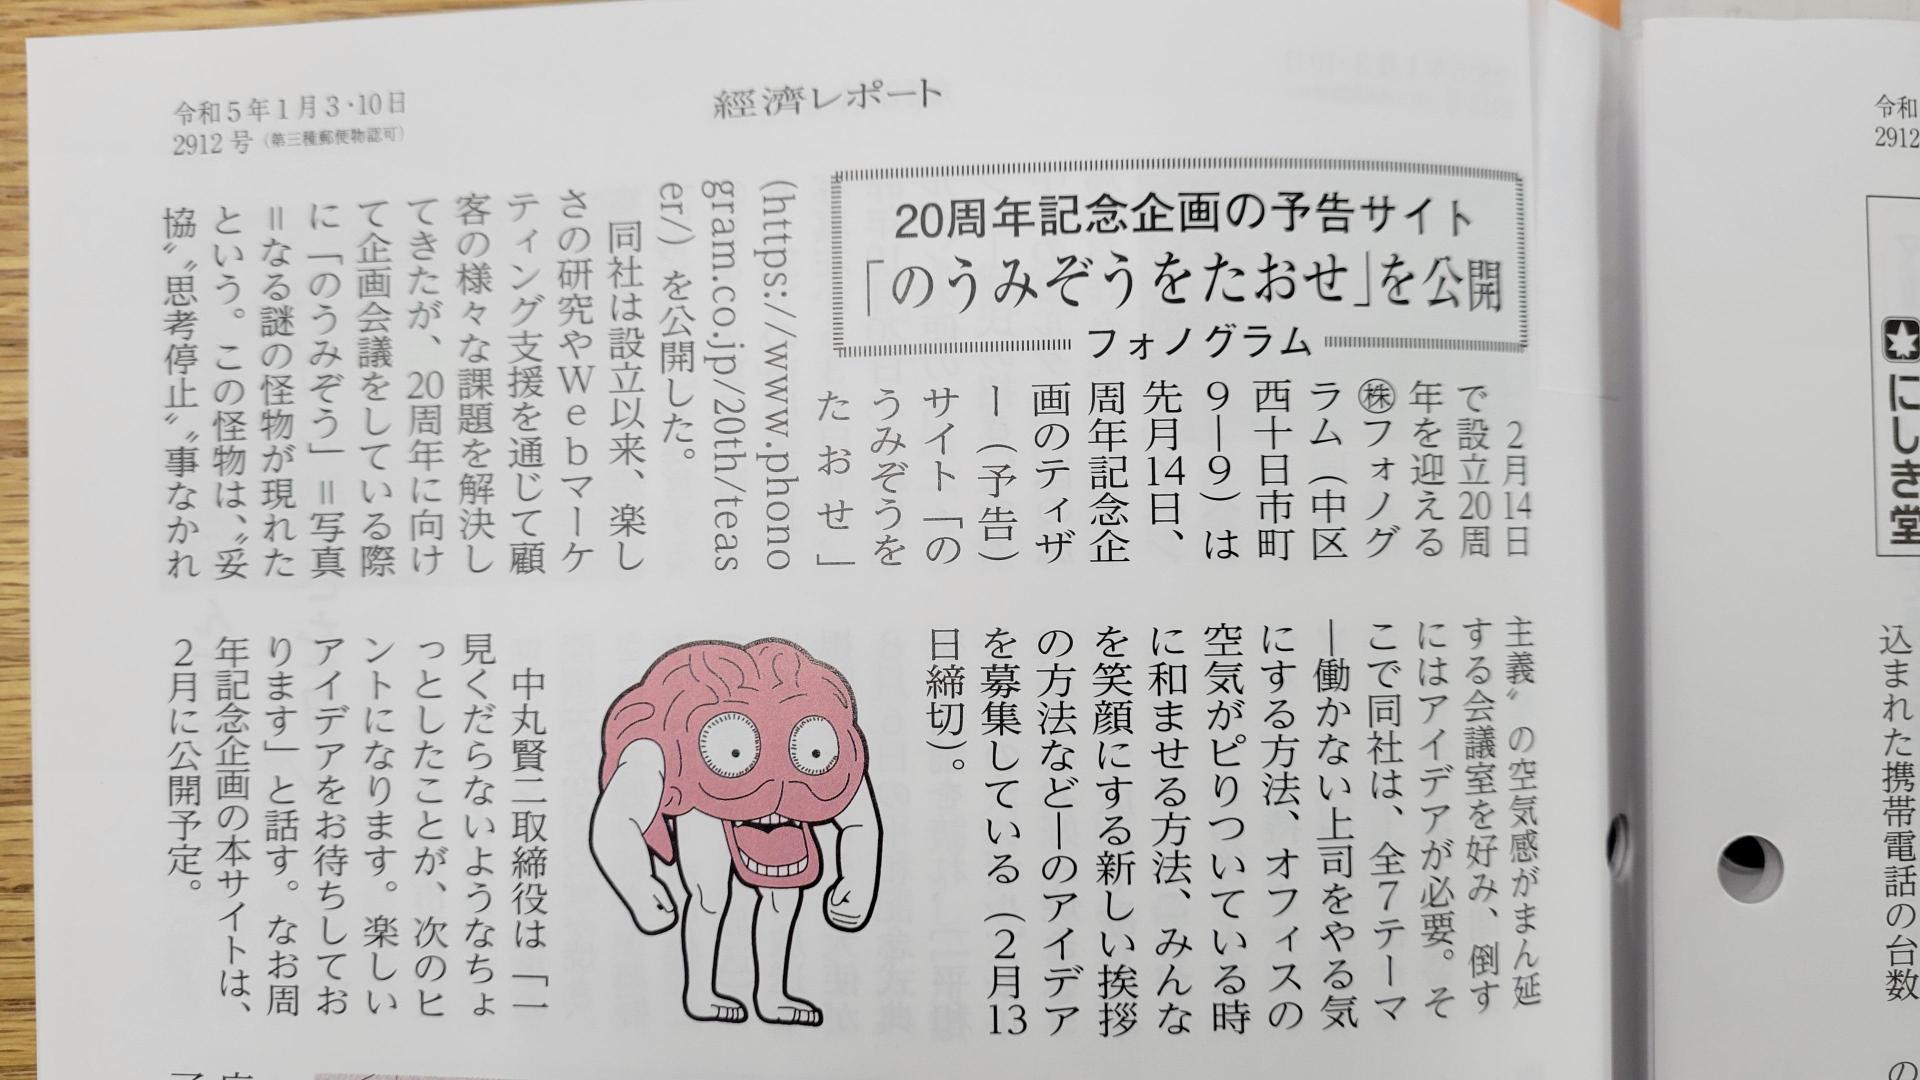 令和5年1月3・10日
2912号(第三種郵便物認可)
經濟レポート
20周年記念企画の予告サイト
「のうみぞうをたおせ」を公開
フォノグラム
2月14日
で設立20周
年を迎える
㈱フォノグ
ラム(中区
西十日市町
9―9)は
先月14日、
周年記念企
画のティザ
ー(予告)
サイト「の
うみぞうを
たおせ」
(https://www.phono
gram.co.jp/20th/teas
er/)を公開した。
同社は設立以来、楽し
さの研究やWebマーケ
ティング支援を通じて顧
客の様々な課題を解決し
てきたが、20周年に向け
て企画会議をしている際
に「のうみぞう」=写真
=なる謎の怪物が現れた
という。この怪物は、〝妥
協〟〝思考停止〟〝事なかれ
主義〟の空気感がまん延
する会議室を好み、倒す
にはアイデアが必要。そ
こで同社は、全7テーマ
―働かない上司をやる気
にする方法、オフィスの
空気がピりついている時
に和ませる方法、みんな
を笑顔にする新しい挨拶
の方法など―のアイデア
を募集している(2月13
日締切)。
中丸賢二取締役は「一
見くだらないようなちょ
っとしたことが、次のヒ
ントになります。楽しい
アイデアをお待ちしてお
ります」と話す。なお周
年記念企画の本サイトは、
2月に公開予定。
令和
2912
にしき堂
込まれた携帯電話の台数
の